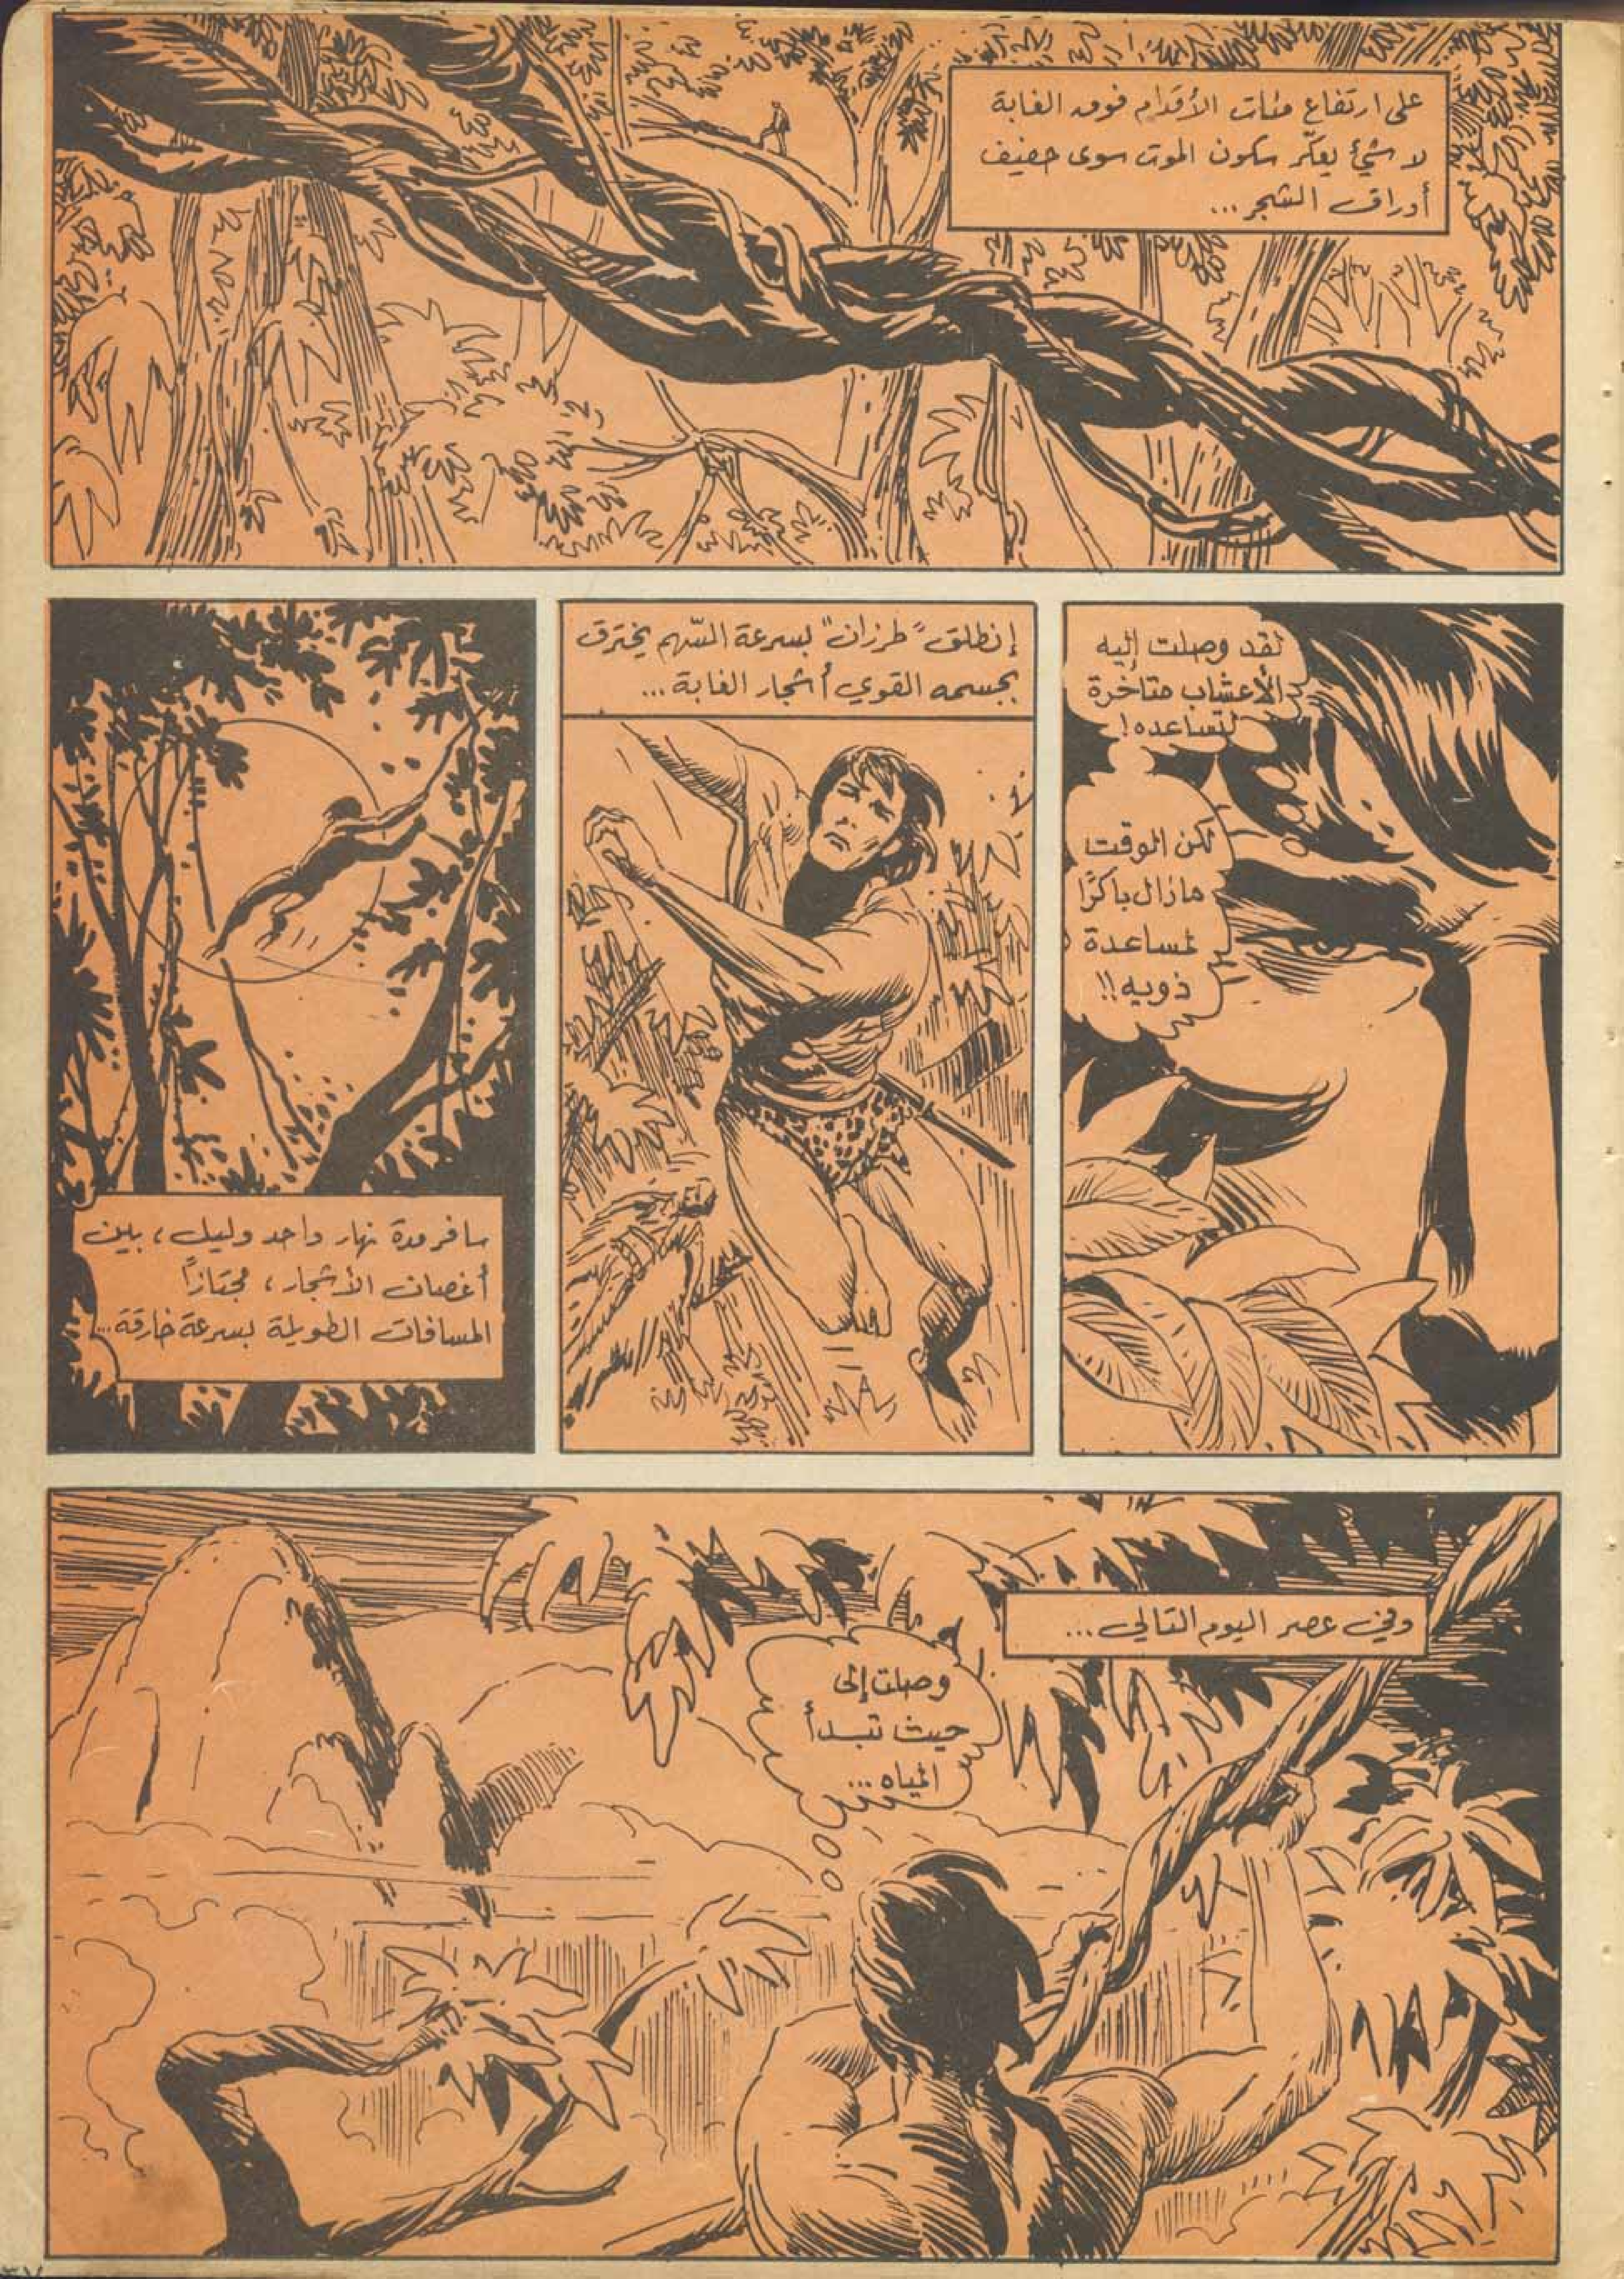 على ارتفاع مئات الأقدام فوق الغابة
لا شيئ يعكّر سكون الموت سوى حفيف
أوراق الشجر...
لقد وصلت إليه
الأعشاب متأخرة
لتساعده!
لكن الوقت
مازال باكرًا
لمساعدة
ذويه!!
إنطلق "طرزان" بسرعة السّهم يخترق
بجسمه القوي أشجار الغابة...
سافر مدة نهار واحد وليل، بين
أغصان الأشجار، مجتازاً
المسافات الطويلة بسرعة خارقة...
وفي عصر اليوم التالي...
وصلت إلى
حيث تبدأ
المياه...